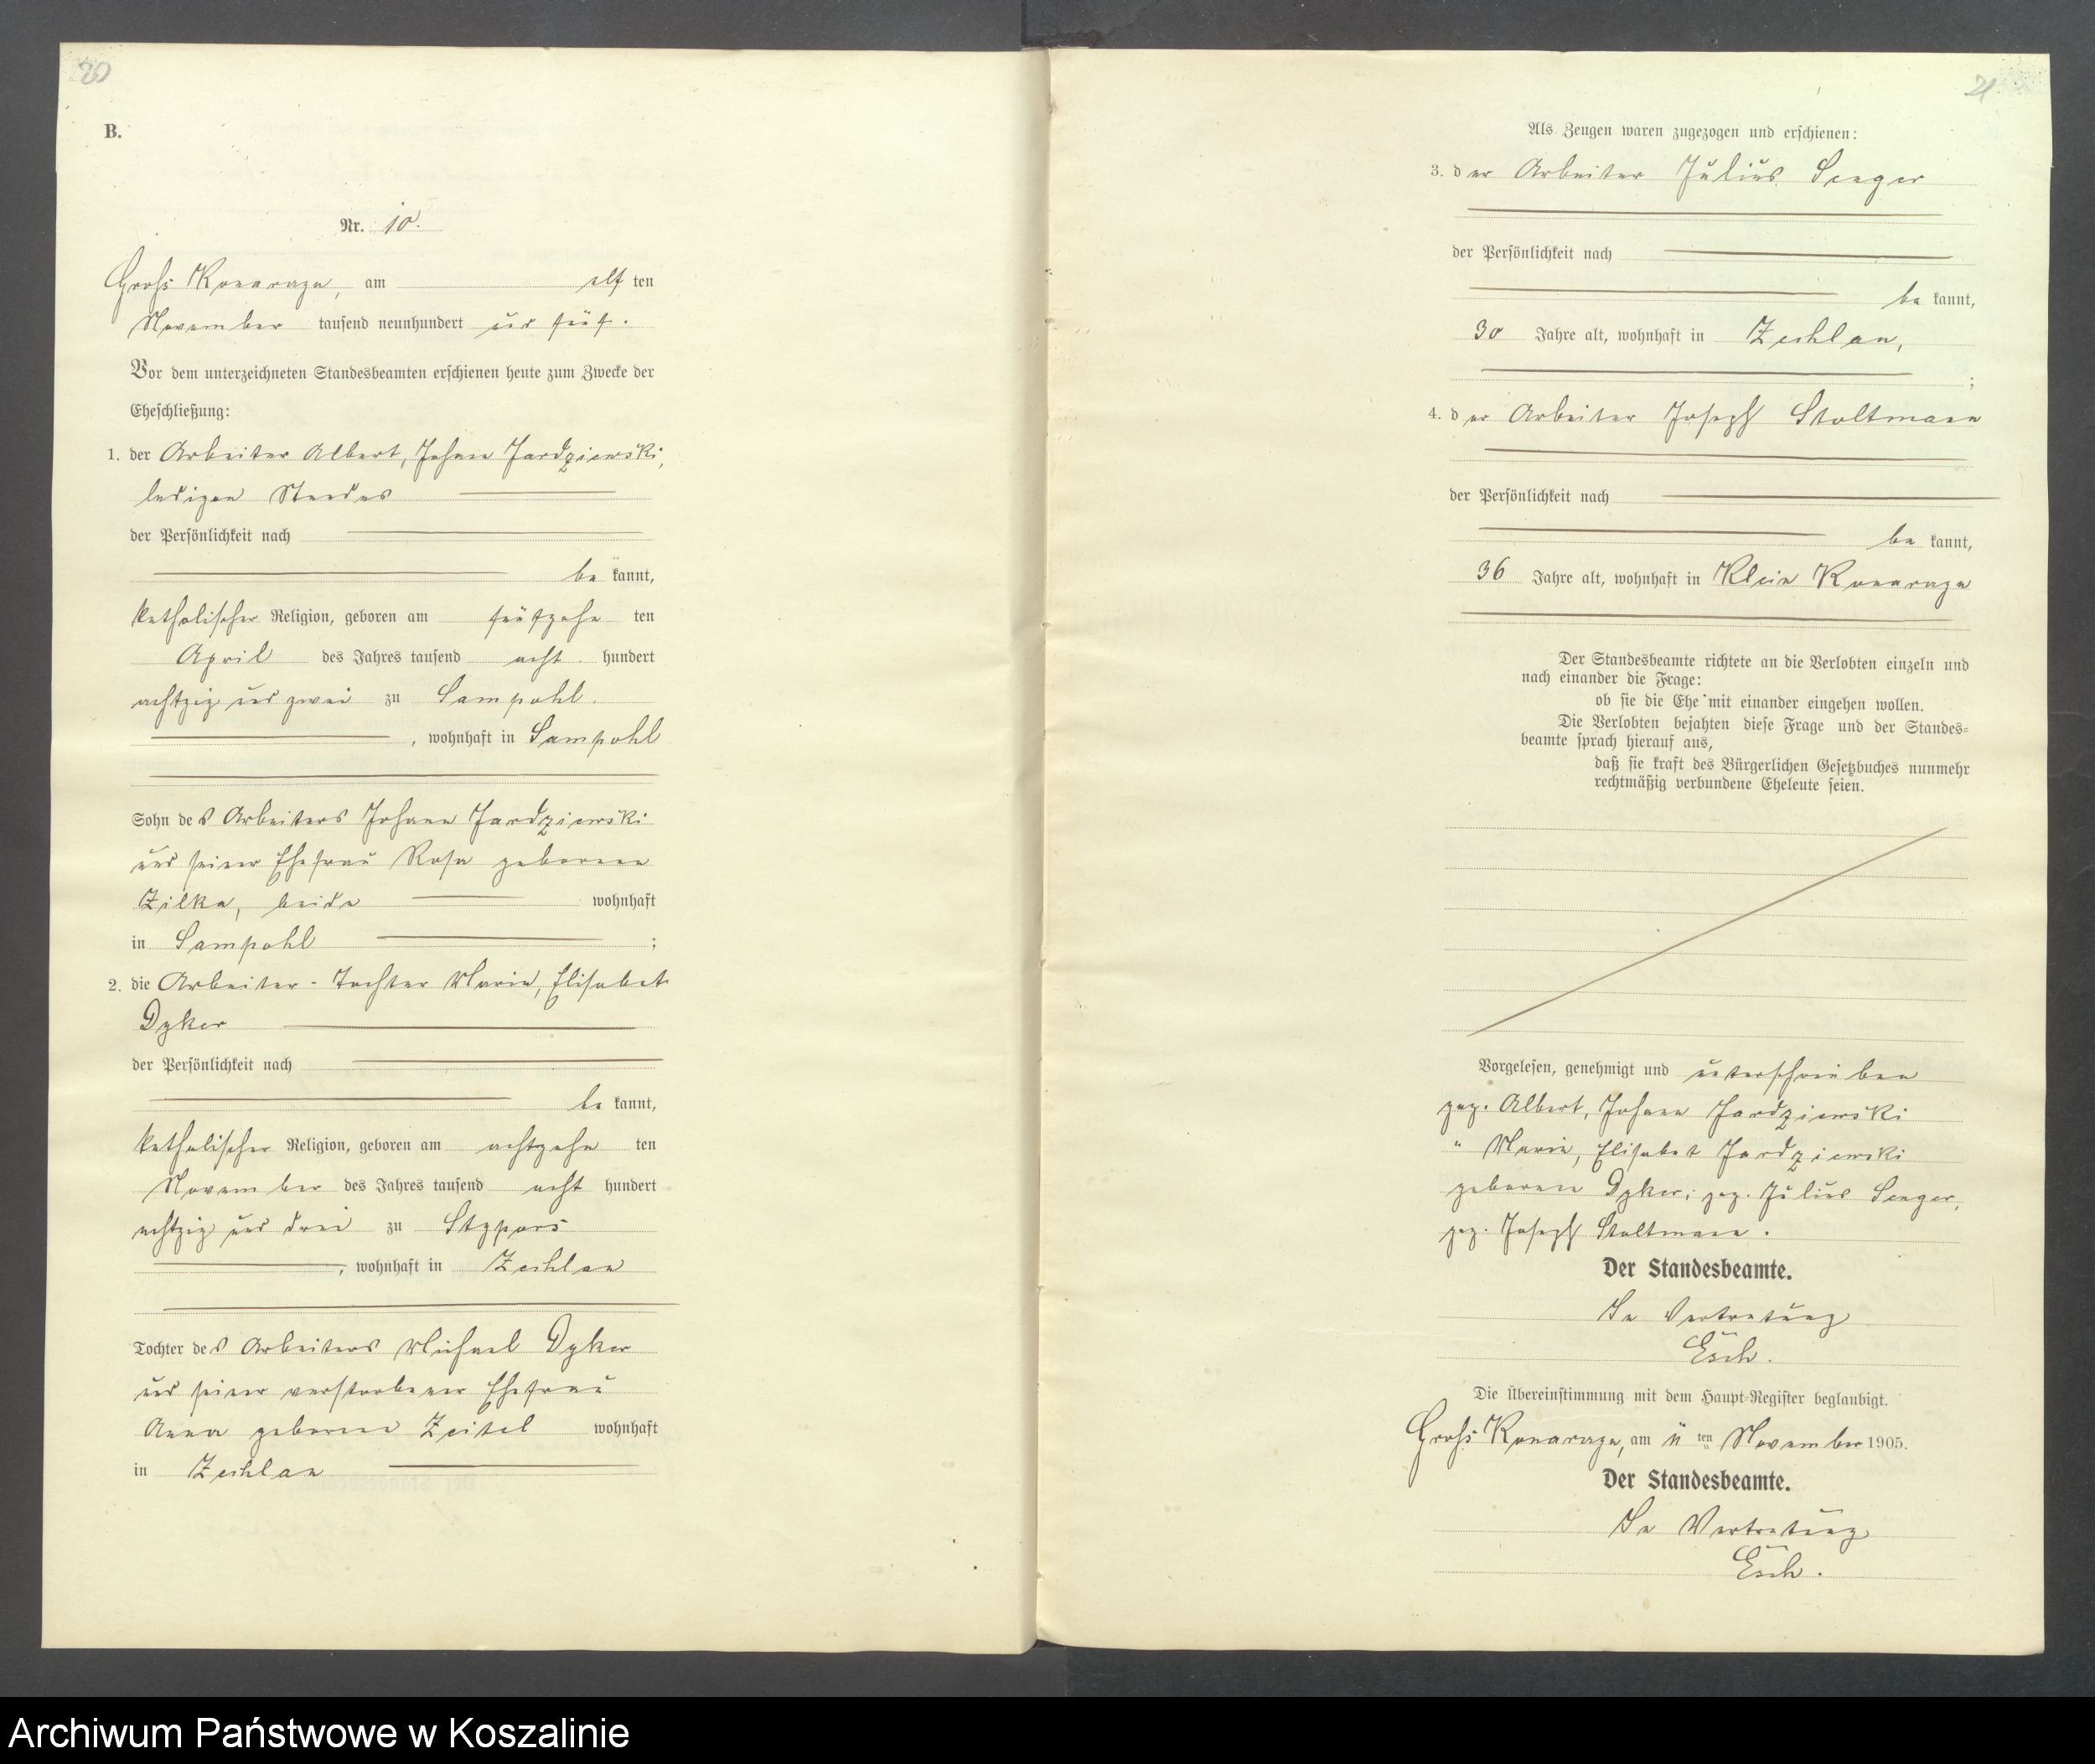 20
B.
Nr. 10.
Groß Konarczyn, am elf ten
November tausend neunhundert und fünf.
Vor dem unterzeichneten Standesbeamten erschienen heute zum Zwecke der
Eheschließung:
1. der Arbeiter Albert, Johann Jardzierski,
ledigen Standes
der Persönlichkeit nach
be kannt,
katholischer Religion, geboren am fünfzehn ten
April des Jahres tausend acht hundert
achtzig und zwei zu Sampohl
, wohnhaft in Sampohl
Sohn des Arbeiters Johann Jardzierski
und seiner Ehefrau Rosa geborenen
Zilka, beide wohnhaft
in Sampohl ;
2. die Arbeiter-Tochter Maria, Elisabet
Dyker
der Persönlichkeit nach
be kannt,
katholischer Religion, geboren am achtzehn ten
November des Jahres tausend acht hundert
achtzig und drei zu
, wohnhaft in Zechlau
Tochter des Arbeiters Michael Dyker
und seiner verstorbenen Ehefrau
Anna geborenen wohnhaft
in Zechlau
21
Als Zeugen waren zugezogen und erschienen:
3. der Arbeiter Julius Senger
der Persönlichkeit nach
be kannt,
30 Jahre alt, wohnhaft in Zechlau,
;
4. der Arbeiter Joseph Stoltmann
der Persönlichkeit nach
be kannt,
36 Jahre alt, wohnhaft in Klein Konarczyn
Der Standesbeamte richtete an die Verlobten einzeln und
nach einander die Frage:
ob sie die Ehe mit einander eingehen wollen.
Die Verlobten bejahten diese Frage und der Standes-
beamte sprach hierauf aus,
daß sie kraft des Bürgerlichen Gesetzbuches nunmehr
rechtmäßig verbundene Eheleute seien.
Vorgelesen, genehmigt und unterschrieben
gez. Albert, Johann Jardzierski
" Maria, Elisabet Jardzierski
geborene Dyker; gez. Julius Senger,
gez. Joseph Stoltmann.
Der Standesbeamte.
In Vertretung
Esch.
Die Übereinstimmung mit dem Haupt-Register beglaubigt.
Groß Konarczyn, am 11 ten November 1905.
Der Standesbeamte.
In Vertretung
Esch.
Archiwum Państwowe w Koszalinie